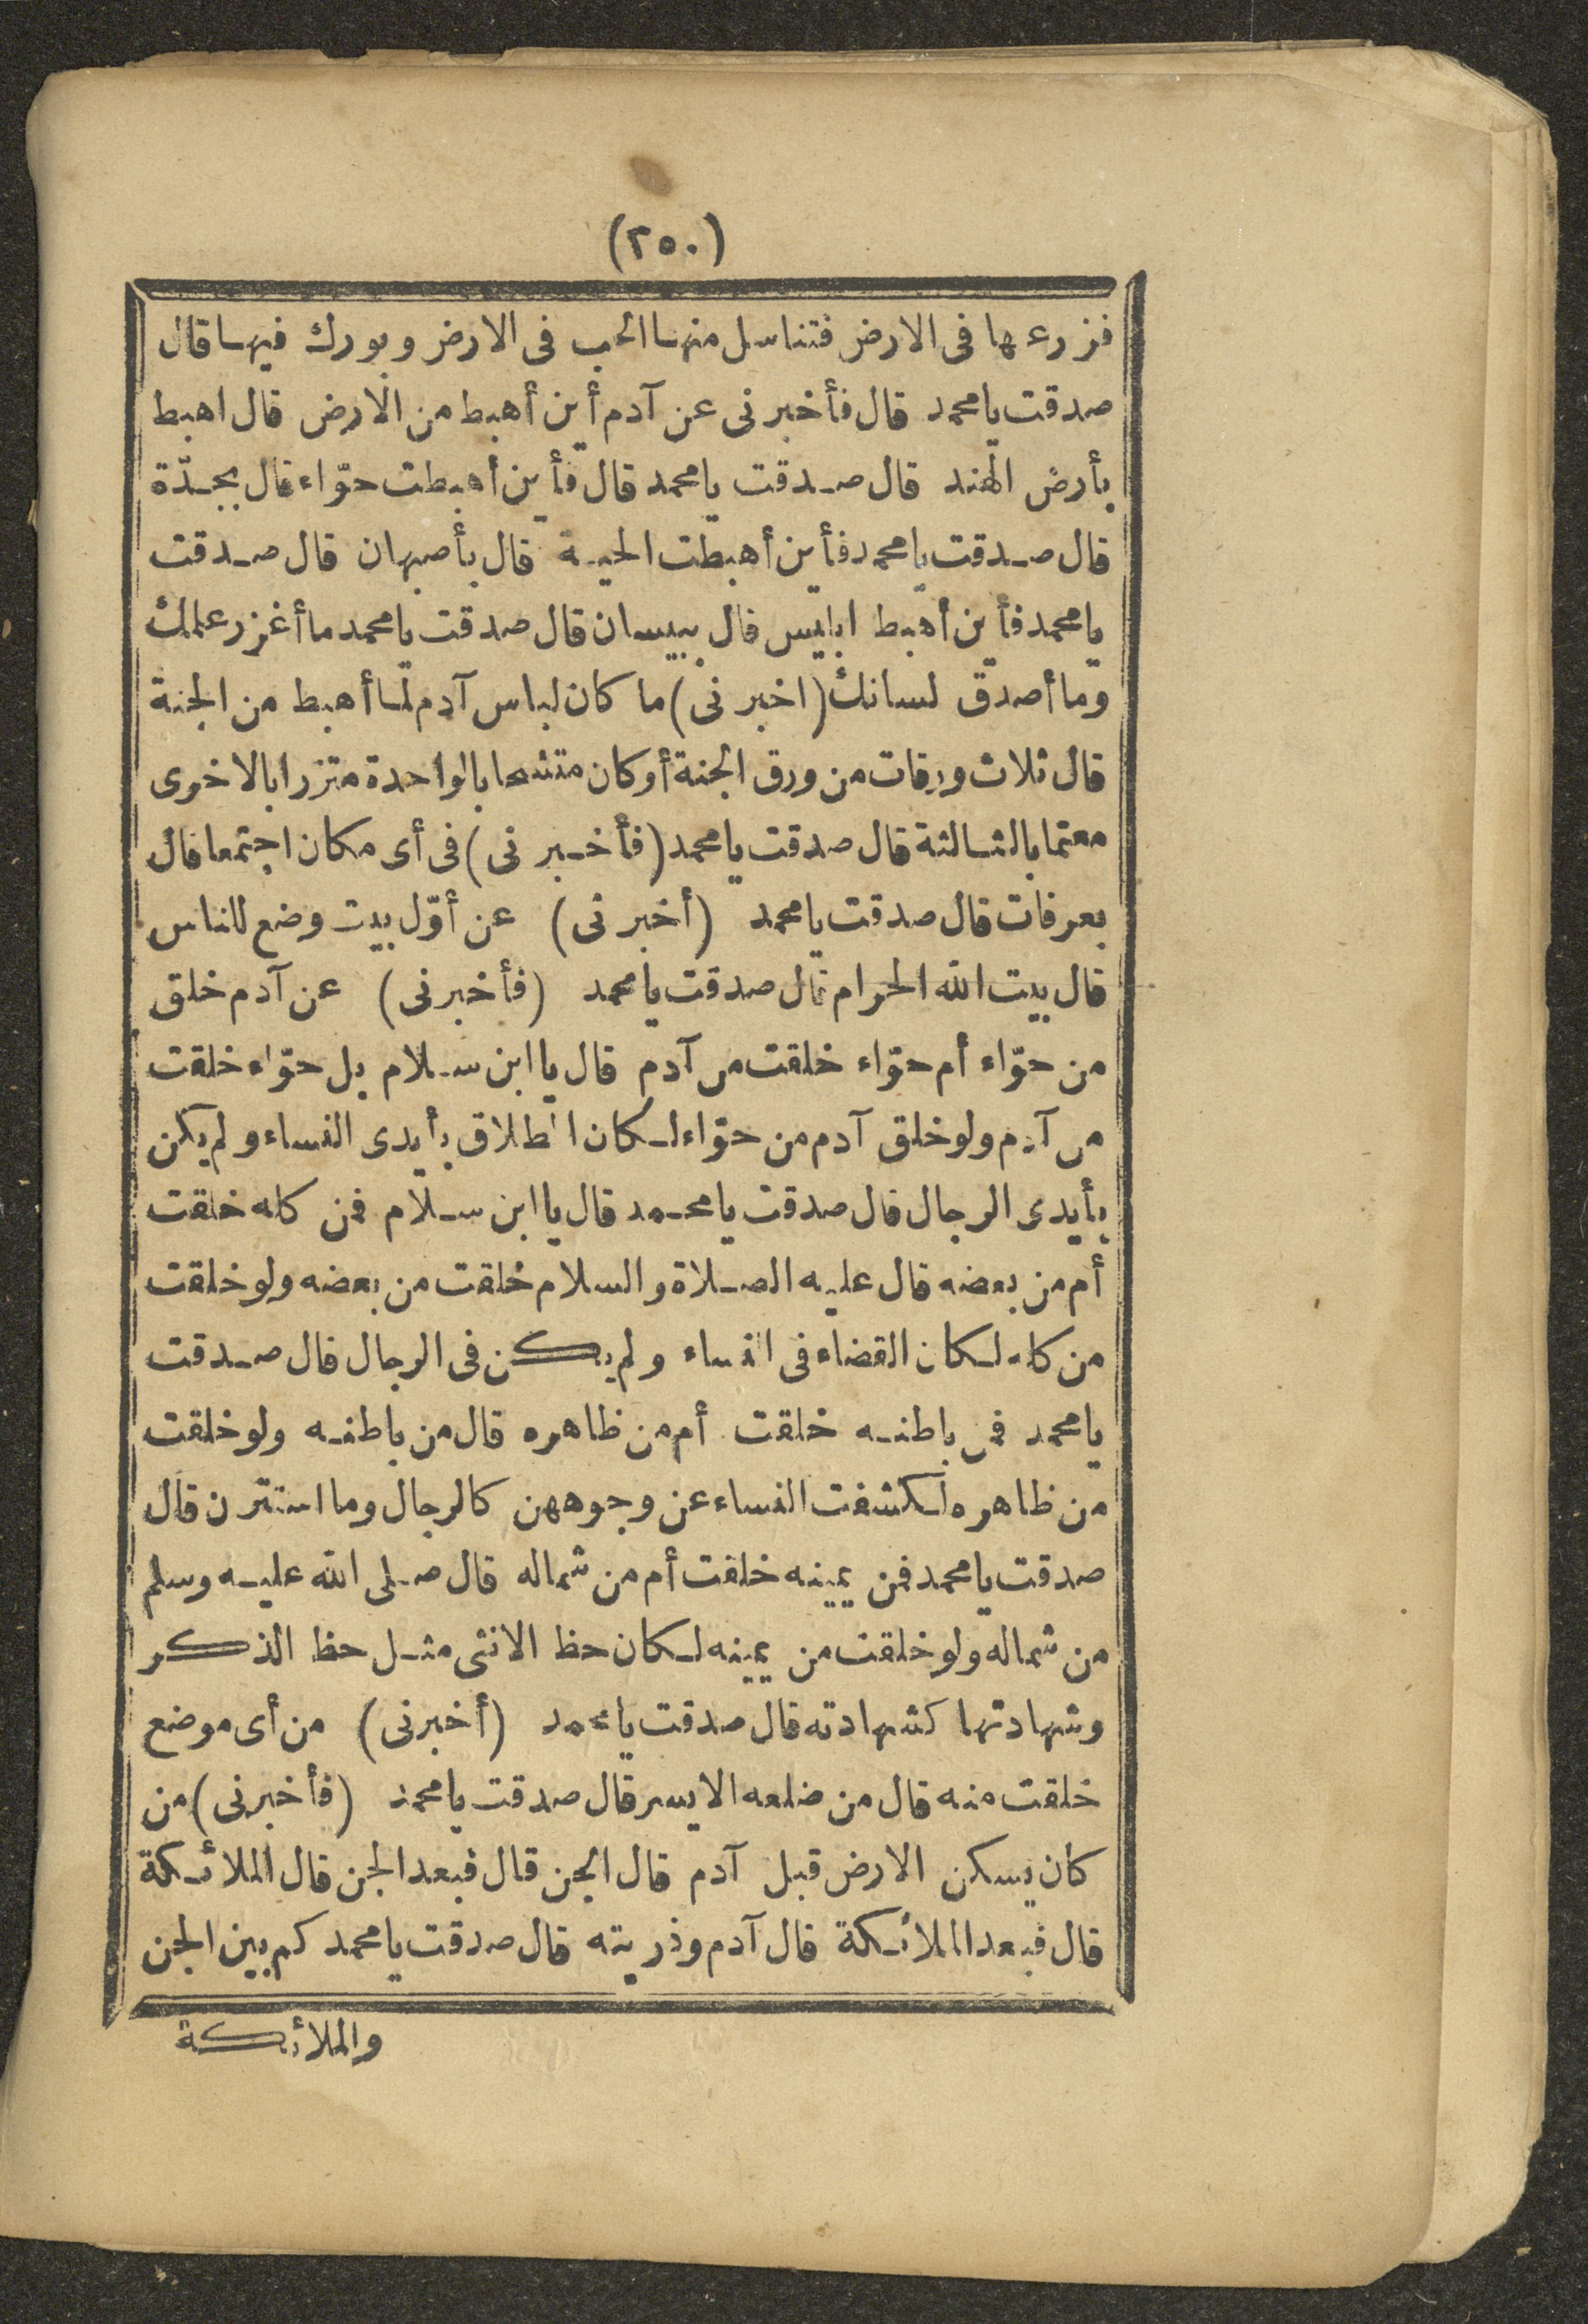 (٢٥٠)
فزرعها فى الارض فتناسل منها الحب فى الارض وبورك فيها قال
صدقت يا محمد قال فأخبرنى عن آدم أين أهبط من الارض قال اهبط
بأرض الهند قال صدقت يا محمد قال فأين أهبطت حوّاء قال بجدّة
قال صدقت يا محمد فأين أهبطت الحية قال بأصبهان قال صدقت
يا محمد فأين أهبط ابليس قال ببيسان قال صدقت يا محمد ما أغزر علمك
وما أصدق لسانك (اخبرنى) ما كان لباس آدم لما أهبط من الجنة
قال ثلاث ورقات من ورق الجنة أوكان متشحا بالواحدة متزرا بالاخرى
معتما بالثالثة قال صدقت يا محمد (فأخبرنى) فى أى مكان اجتمعا قال
بعرفات قال صدقت يا محمد (أخبرنى) عن أوّل بيت وضع للناس
قال بيت الله الحرام قال صدقت يا محمد (فأخبرنى) عن آدم خلق
من حوّاء أم حوّاء خلقت من آدم قال يا ابن سلام بل حوّاء خلقت
من آدم ولو خلق آدم من حوّاء لكان الطلاق بأيدى النساء ولم يكن
بأيدى الرجال قال صدقت يا محمد قال يا ابن سلام فمن كله خلقت
أم من بعضه قال عليه الصلاة والسلام خلقت من بعضه ولو خلقت
من كله لكان القضاء فى النساء ولم يكن فى الرجال قال صدقت
يا محمد فمن باطنه خلقت أم من ظاهره قال من باطنه ولو خلقت
من ظاهره لكشفت النساء عن وجوههن كالرجال وما استترن قال
صدقت يا محمد فمن يمينه خلقت أم من شماله قال صلى الله عليه وسلم
من شماله ولو خلقت من يمينه لكان حظ الانثى مثل حظ الذكر
وشهادتها كشهادته قال صدقت يا محمد (أخبرنى) من أى موضع
خلقت منه قال من ضلعه الايسر قال صدقت يا محمد (فأخبرنى) من
كان يسكن الارض قبل آدم قال الجن قال فبعد الجن قال الملائكة
قال فبعد الملائكة قال آدم وذريته قال صدقت يا محمد كم بين الجن
والملائكة